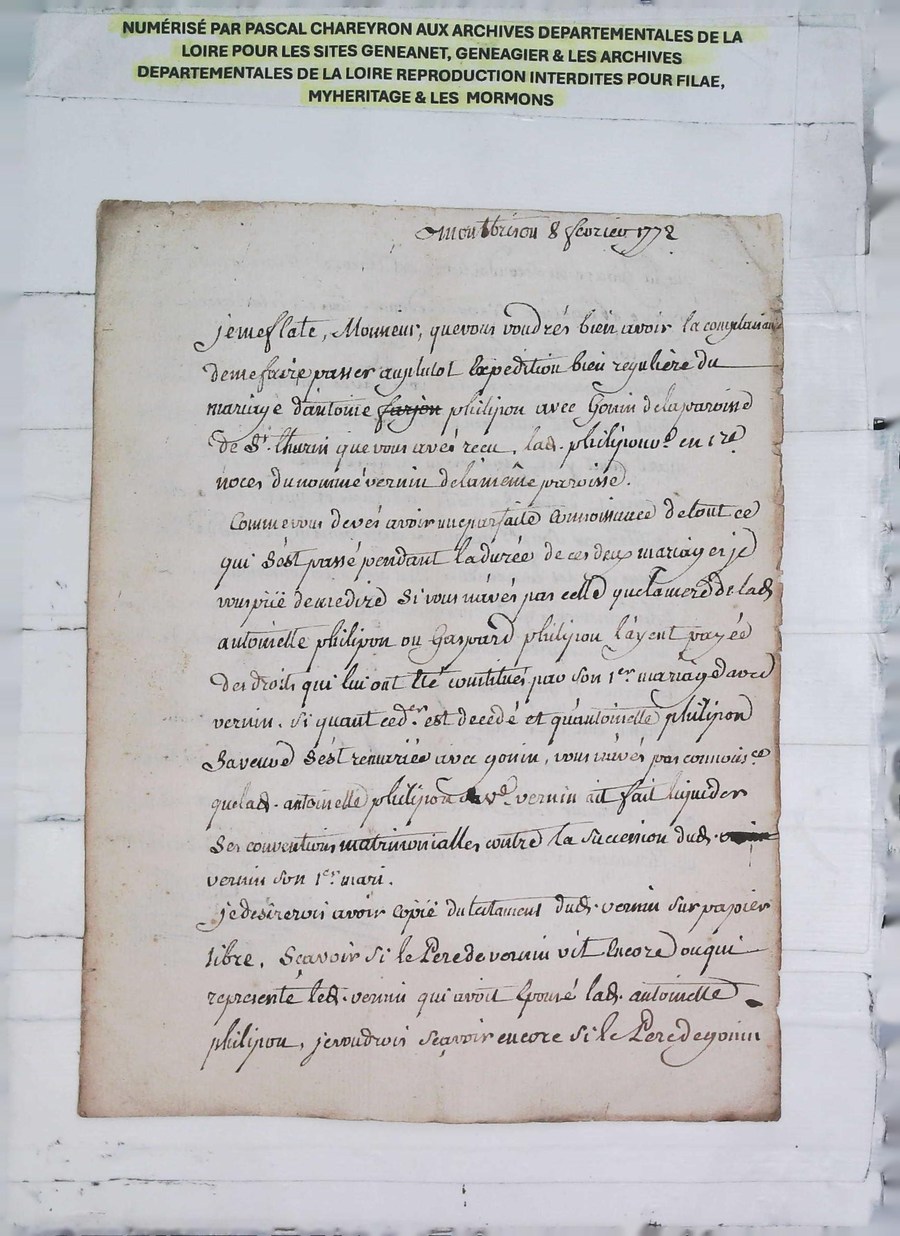 NUMÉRISÉ PAR PASCAL CHAREYRON AUX ARCHIVES DEPARTEMENTALES DE LA
LOIRE POUR LES SITES GENEANET, GENEAGIER & LES ARCHIVES
DEPARTEMENTALES DE LA LOIRE REPRODUCTION INTERDITES POUR FILAE,
MYHERITAGE & LES MORMONS
Montbrison 8 fevrier 1772
je me flate, Monsieur, que vous voudrés bien avoir la complaisan
de me faire passer au plutot l'expedition bien reguliere du
mariage d'antoinie farjon philipon avec Gonin de la paroisse
de St. thurin que vous avés reçu, lad. philipon vd en 1res
noces du nommé vernin de la même paroisse.
Comme vous devés avoir une parfaite connoissance de tout ce
qui s'est passé pendant la durée de ces deux mariages je
vous prie de me dire si vous n'avés pas celle que la mere de lad.
antoinette philipon ou Gaspard philipon l'ayent payée
des droits qui lui ont été constitués par son 1er mariage avec
vernin. si quant ced.er est decedé et qu'antoinette philipon
sa veuve s'est remariée avec gonin, vous n'avés pas connoisce
que lad. antoinette philipon vd. vernin ait fait liquider
ses conventions matrimonialles contre la succession dud.
vernin son 1er mari.
je desirerois avoir copie du testament dud. vernin sur papier
libre, scavoir si le Pere de vernin vit encore ou qui
represente led. vernin qui avoit epousé lad. antoinette
philipon, je voudrois scavoir encore si le Pere de gonin